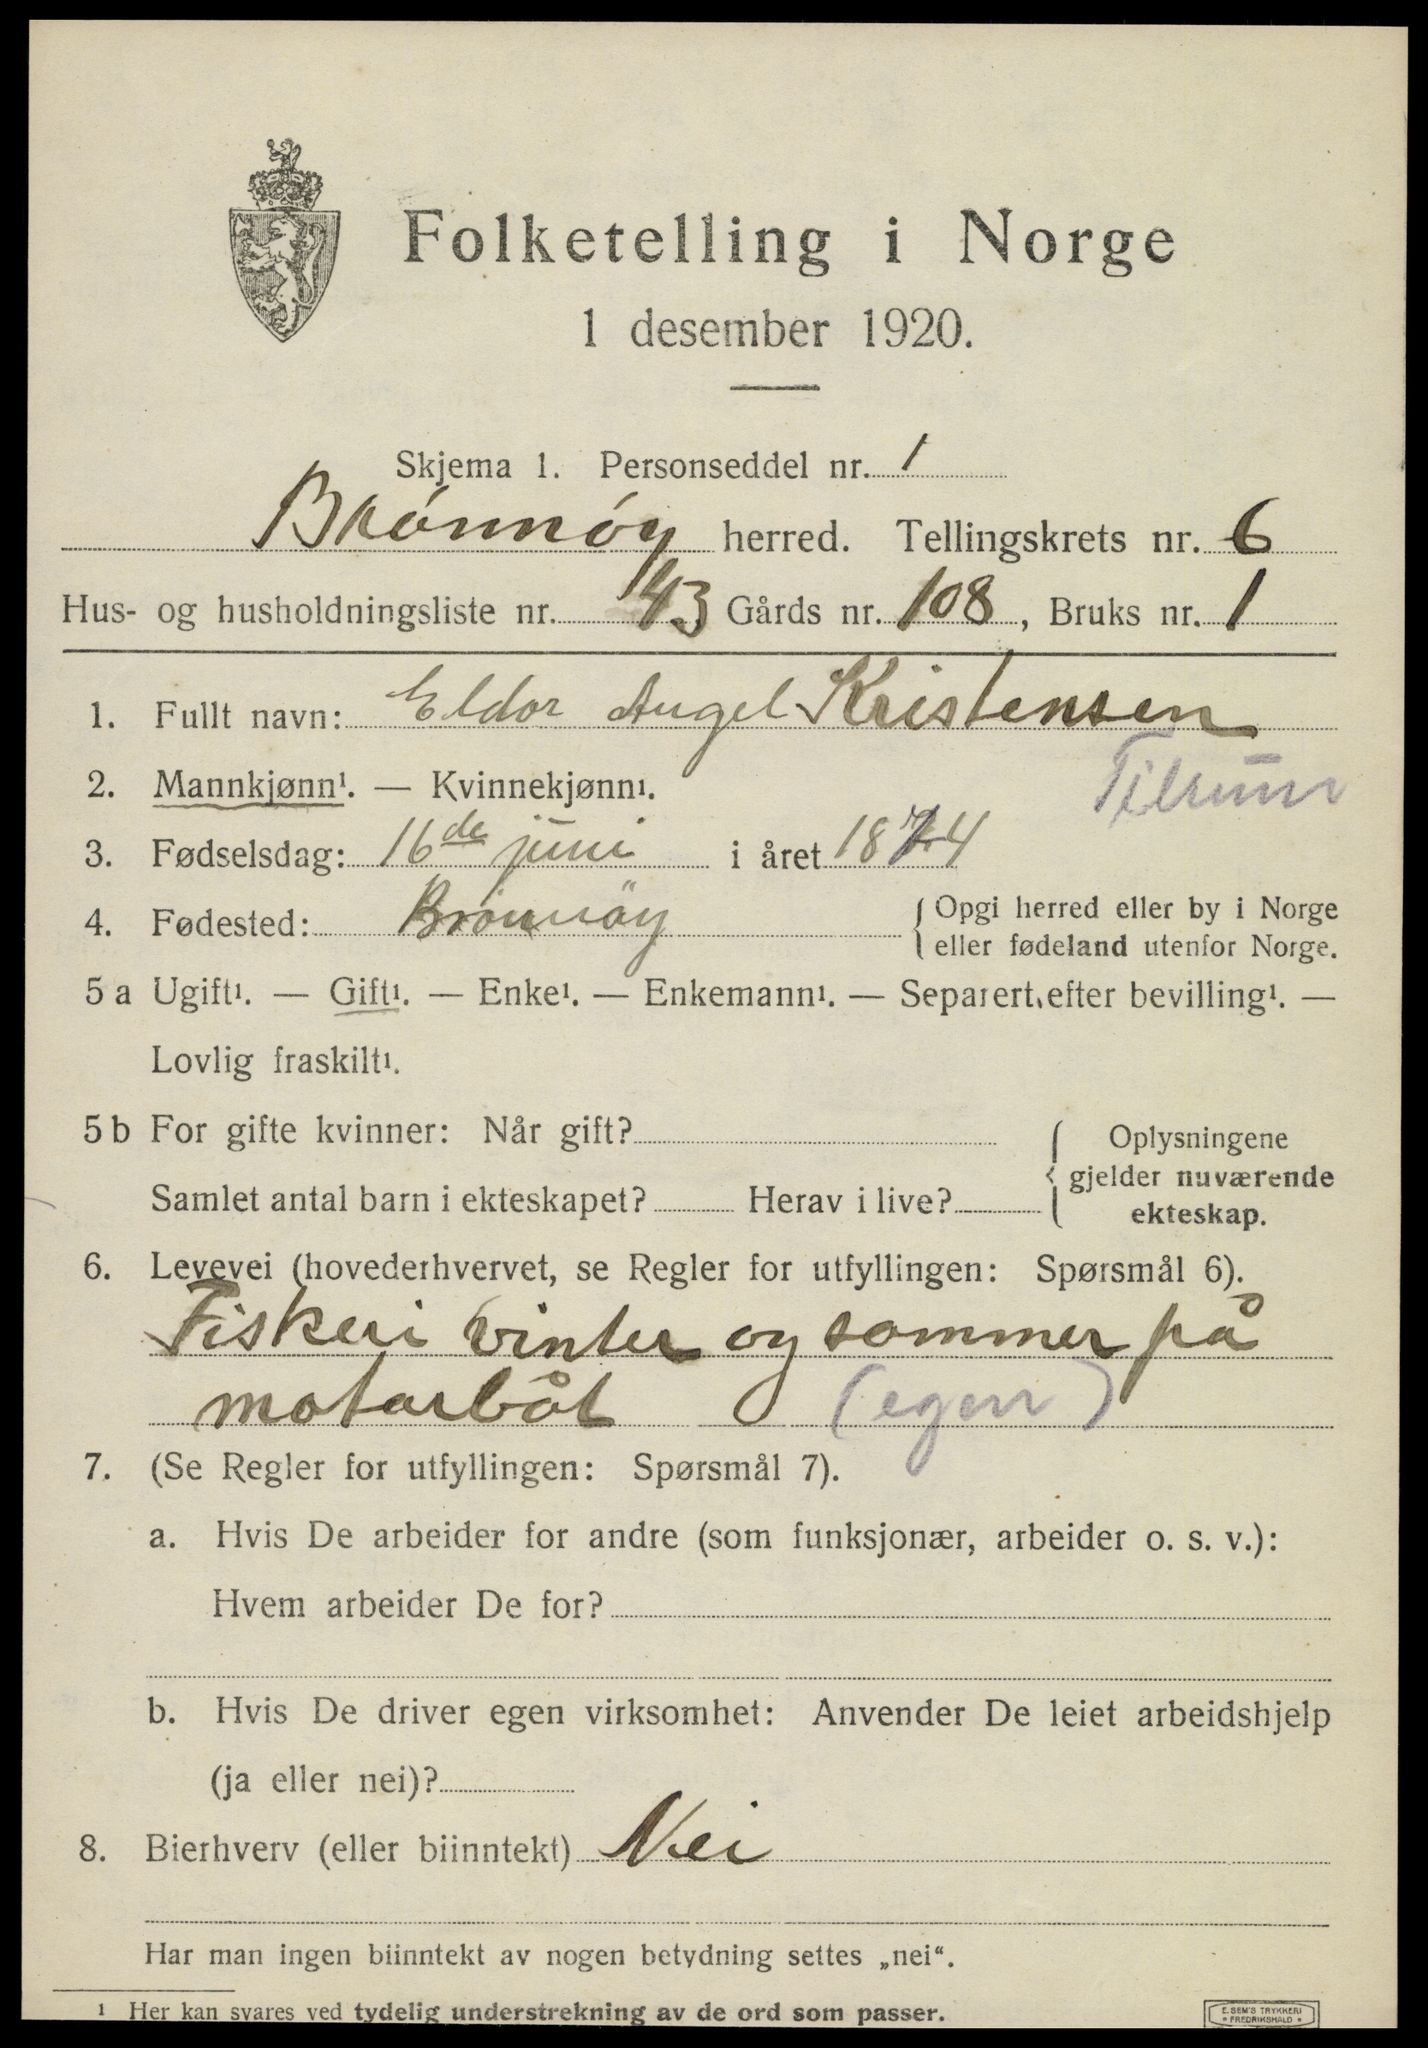 Folketelling i Norge
1 desember 1920.
Skjema 1. Personseddel nr. 1
Brönnöy herred. Tellingskrets nr. 6
Hus- og husholdningsliste nr. 43 Gårds nr. 108, Bruks nr. 1
1. Fullt navn: Eldor Angel Kristensen
2. Mannkjønn¹. — Kvinnekjønn¹. Tilrum
3. Fødselsdag: 16de juni i året 1874
4. Fødested: Brönnöy { Opgi herred eller by i Norge
eller fødeland utenfor Norge.
5 a Ugift¹. — Gift¹. — Enke¹. — Enkemann¹. — Separert efter bevilling¹. —
Lovlig fraskilt¹.
5 b For gifte kvinner: Når gift? { Oplysningene
gjelder nuværende
Samlet antal barn i ekteskapet? Herav i live? ekteskap.
6. Levevei (hovederhvervet, se Regler for utfyllingen: Spørsmål 6).
Fiskeri vinter og sommer på
motorbåt (egen)
7. (Se Regler for utfyllingen: Spørsmål 7).
a. Hvis De arbeider for andre (som funksjonær, arbeider o. s. v.):
Hvem arbeider De for?
b. Hvis De driver egen virksomhet: Anvender De leiet arbeidshjelp
(ja eller nei)?
8. Bierhverv (eller biinntekt) Nei
Har man ingen biinntekt av nogen betydning settes „nei“.
¹ Her kan svares ved tydelig understrekning av de ord som passer.
E. SEM'S TRYKKERI
* FREDRIKSHALD *